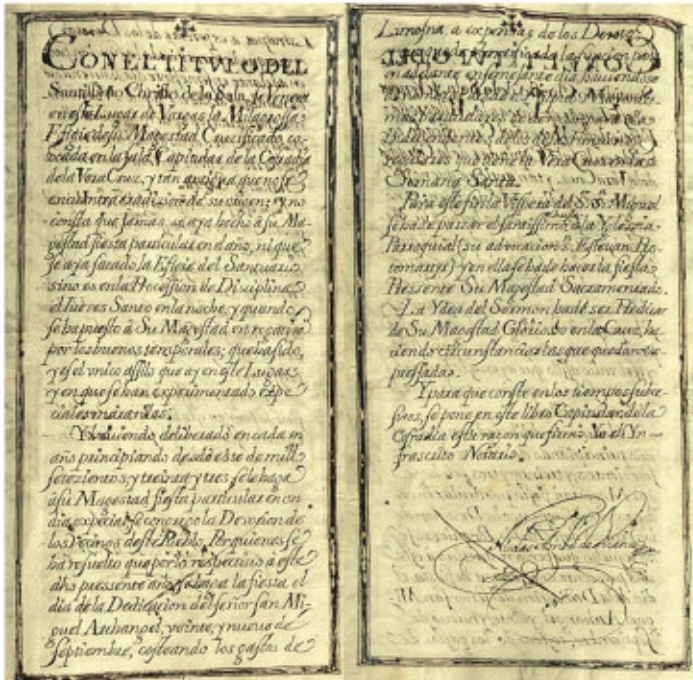 CON EL TITVLO DEL
Santissimo Christo de la Sala, se venera
en este Lugar de Vargas la Milagrossa
Eficie de su Magestad Crucificado, co-
locada en la Sala Capitular de la Cofradia
de la Vera Cruz, y tan antigua que no se
encuentra tradizion de su origen; y no
consta que Jamas se aya hecho à su Ma-
gestad fiesta particular en año, ni que
se aya sacado la Eficie del Santuario
sino es en la Procession de Disciplina
el Jueves Santo en la noche, y quando
se ha puesto à Su Magestad en rogativa
por los buenos temporales; que ha sido,
y es el vnico assilo que ay en este Lugar
y en que se han experimentado espe-
ciales maravillas.
Y haviendo deliberado en cada un
año principiando desde este de mill
setezientos, y treinta y tres se le haga
à su Magestad fiesta particular en un
dia especial, se conuoco la Devosion de
los Vecinos deste Pueblo, Por quienes se
ha resuelto que por lo respectivo à este
dho pressente año se haga la fiesta el
dia de la Dedicacion del Señor San Mi-
guel Archangel, veinte, y nueve de
septiembre, costeando los gastos de
Limosna, a expensas de los Devotos
en adelante en semejante dia haviendose
la Vera Cruz en las
Semana Santa.
Para este fin la Vispera del S. S. Miguel
se ha de passar el santissimo à la Yglessia
Parroquial (su advocacion S. Estevan Pro-
tomartyr) y en ella se ha de hacer la fiesta
Pressente Su Magestad Sacramentado.
La Ydea del Sermon ha de ser Predicar
de Su Magestad Christo en la Cruz, ha-
ciendo circunstancias las que quedan ex-
pressadas.
Y para que conste en los tiempos subce-
sivos, se pone en este libro Capitular de la
Cofradia esta razon que firmo Yo el Yn-
frascrito Notario.